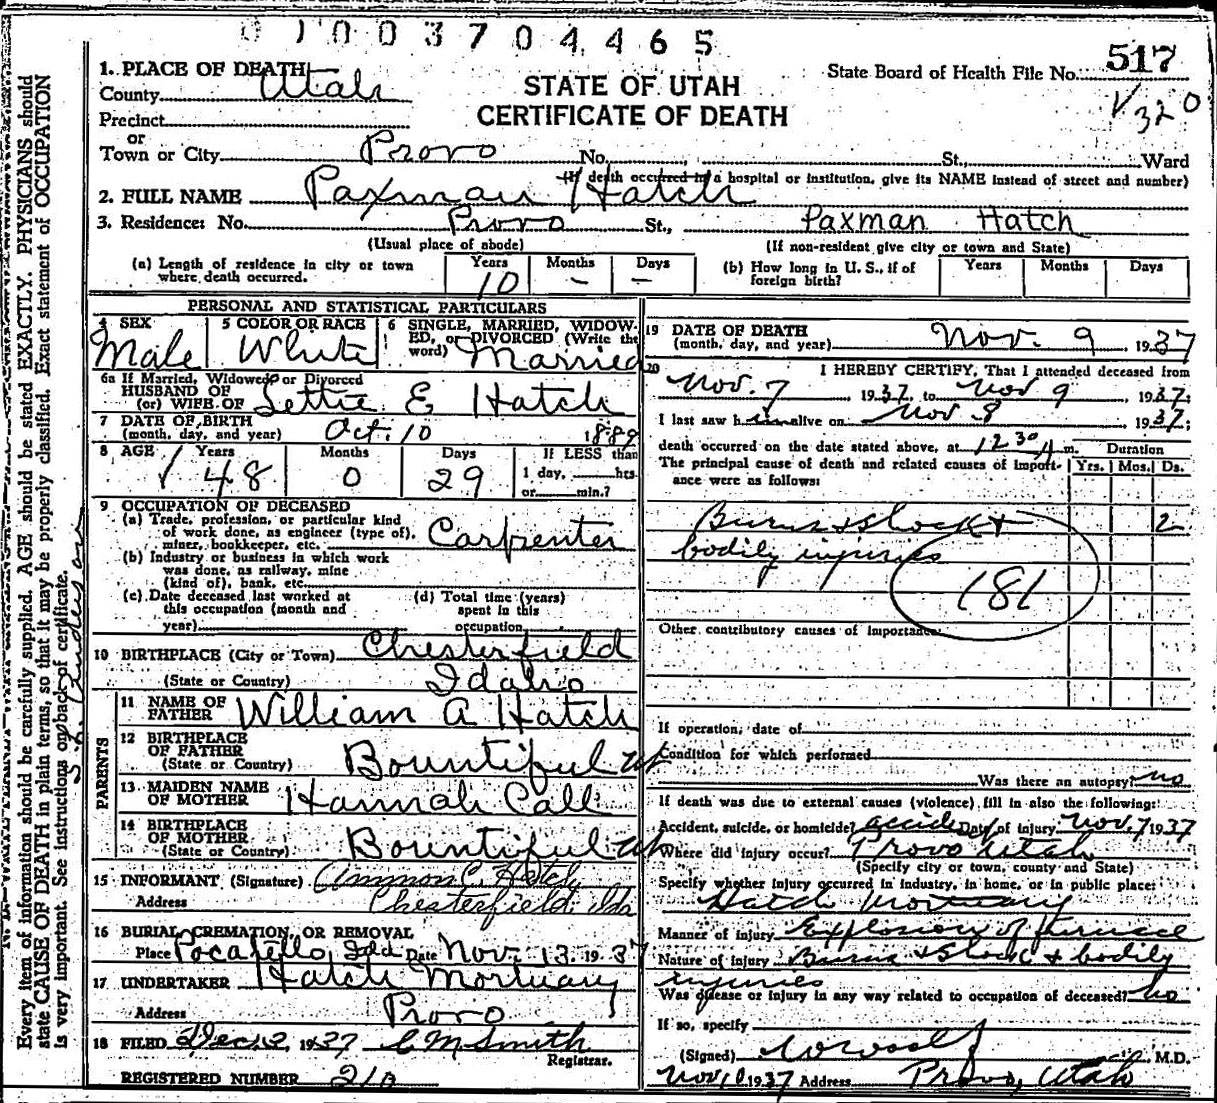 0 1 0 0 3 7 0 4 4 6 5
STATE OF UTAH
CERTIFICATE OF DEATH
State Board of Health File No. 517
V 320
1. PLACE OF DEATH
County Utah
Precinct
or
Town or City Provo No. St., Ward
(If death occurred in a hospital or institution, give its NAME instead of street and number)
2. FULL NAME Paxman Hatch
3. Residence: No. Provo St., Paxman Hatch
(Usual place of abode) (If non-resident give city or town and State)
(a) Length of residence in city or town where death occurred. Years 10 Months – Days –
(b) How long in U. S., if of foreign birth? Years Months Days
PERSONAL AND STATISTICAL PARTICULARS
4 SEX Male
5 COLOR OR RACE White
6 SINGLE, MARRIED, WIDOWED, or DIVORCED (Write the word) Married
6a If Married, Widowed or Divorced
HUSBAND OF
(or) WIFE OF Lettie E Hatch
7 DATE OF BIRTH
(month, day, and year) Oct. 10 1889
8 AGE Years 48 Months 0 Days 29 If LESS than 1 day, hrs. or min.?
9 OCCUPATION OF DECEASED
(a) Trade, profession, or particular kind of work done, as engineer (type of), miner, bookkeeper, etc. Carpenter
(b) Industry or business in which work was done, as railway, mine (kind of), bank, etc.
(c) Date deceased last worked at this occupation (month and year)
(d) Total time (years) spent in this occupation
10 BIRTHPLACE (City or Town) Chesterfield
(State or Country) Idaho
PARENTS
11 NAME OF FATHER William A Hatch
12 BIRTHPLACE OF FATHER
(State or Country) Bountiful Ut
13 MAIDEN NAME OF MOTHER Hannah Call
14 BIRTHPLACE OF MOTHER
(State or Country) Bountiful Ut
15 INFORMANT (Signature) Ammon C. Hatch
Address Chesterfield, Ida
16 BURIAL, CREMATION, OR REMOVAL
Place Pocatello Ida Date Nov. 13 1937
17 UNDERTAKER Hatch Mortuary
Address Provo
18 FILED Dec. 2, 1937 C M Smith
Registrar.
REGISTERED NUMBER 210
19 DATE OF DEATH
(month, day, and year) Nov. 9 1937
20 I HEREBY CERTIFY, That I attended deceased from
Nov. 7 1937, to Nov 9, 1937.
I last saw him alive on Nov 8 1937;
death occurred on the date stated above, at 12 30 A m.
The principal cause of death and related causes of importance were as follows:
Duration
Yrs. Mos. Ds.
Burns & Shock + 2
bodily injuries
181
Other contributory causes of importance:
If operation, date of
Condition for which performed
Was there an autopsy? no
If death was due to external causes (violence) fill in also the following:
Accident, suicide, or homicide? accident Day of injury Nov. 7 1937
Where did injury occur? Provo Utah
(Specify city or town, county and State)
Specify whether injury occurred in industry, in home, or in public place:
Hatch Mortuary
Manner of injury Explosion of furnace
Nature of injury Burns & Shock & bodily
injuries
Was disease or injury in any way related to occupation of deceased? No
If so, specify
(Signed) M.D.
Nov 10 1937 Address Provo, Utah
Every item of information should be carefully supplied. AGE should be stated EXACTLY. PHYSICIANS should
state CAUSE OF DEATH in plain terms, so that it may be properly classified. Exact statement of OCCUPATION
is very important. See instructions on back of certificate.